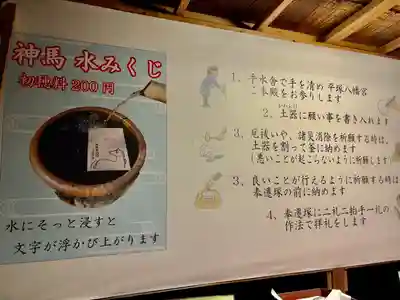 神馬 水みくじ
初穂料200円
水にそっと浸すと
文字が浮かび上がります
1、手水舎で手を清め 平塚八幡宮
ご本殿をお参りします
2、土器に願い事を書き入れます
3、厄祓いや、諸災消除を祈願する時は、
土器を割って釜に納めます
(悪いことが起こらないように祈願します)
3、良いことが行えるように祈願する時は
奉遷塚の前に納めます
4、奉遷塚に二礼二拍手一礼の
作法で拝礼をします